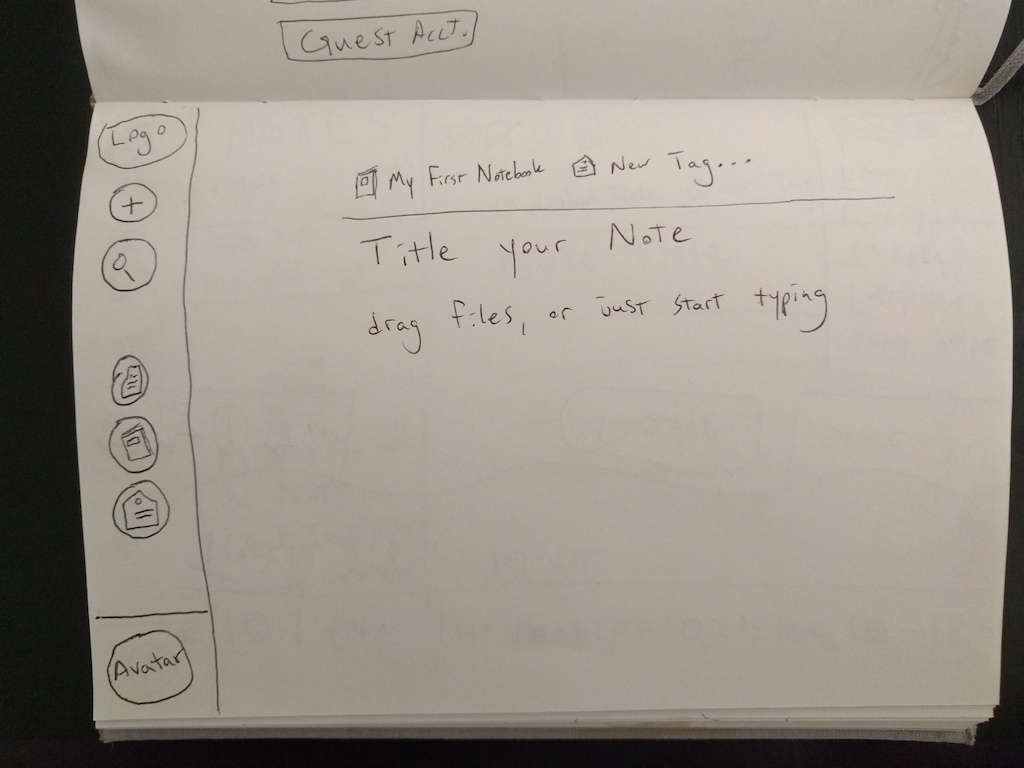 Guest Acct.
Logo
My First Notebook New Tag...
Title your Note
drag files, or just start typing
Avatar